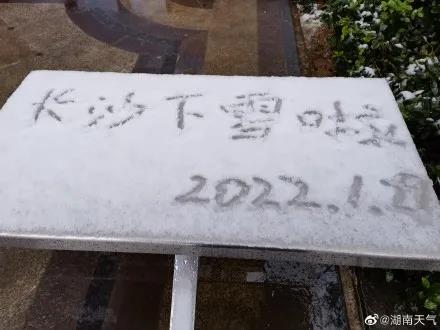 长沙下雪啦
2022.1.
@湖南天气